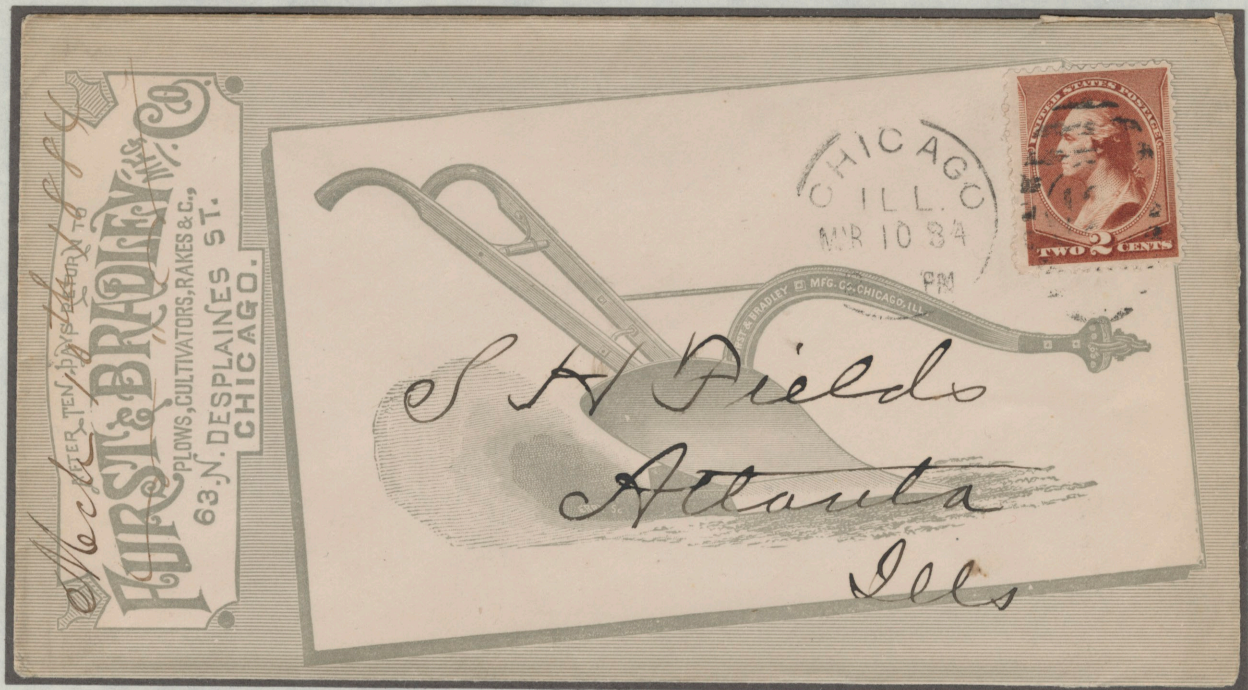 AFTER TEN DAYS RETURN TO
FURST & BRADLEY MFG. CO.
PLOWS, CULTIVATORS, RAKES & C.,
63 N. DESPLAINES ST.
CHICAGO.
1884
CHICAGO
ILL.
MAR 10 84
PM
UNITED STATES POSTAGE
TWO 2 CENTS
ST & BRADLEY MFG. CO. CHICAGO, ILL.
S H Fields
Atlanta
Ills